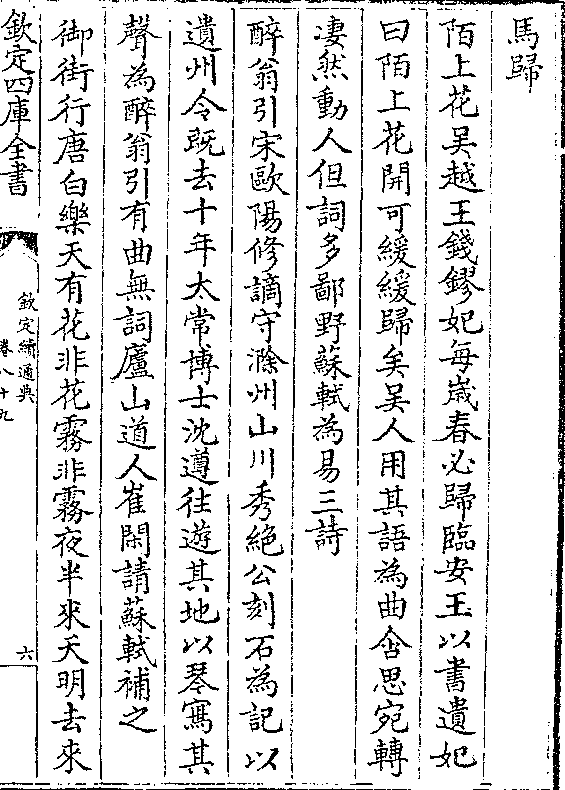 馬歸
陌上花吳越王錢鏐妃每歲春必歸臨安王以書遺妃
曰陌上花開可緩緩歸矣吳人用其語為曲含思宛轉
凄然動人但詞多鄙野蘇軾為易三詩
醉翁引宋歐陽修謫守滁州山川秀絶公刻石為記以
遺州令既去十年太常博士沈遵往遊其地以琴寫其
聲為醉翁引有曲無詞廬山道人崔閑請蘇軾補之
御街行唐白樂天有花非花霧非霧夜半來天明去來
欽定四庫全書
欽定續通典
卷八十九
六